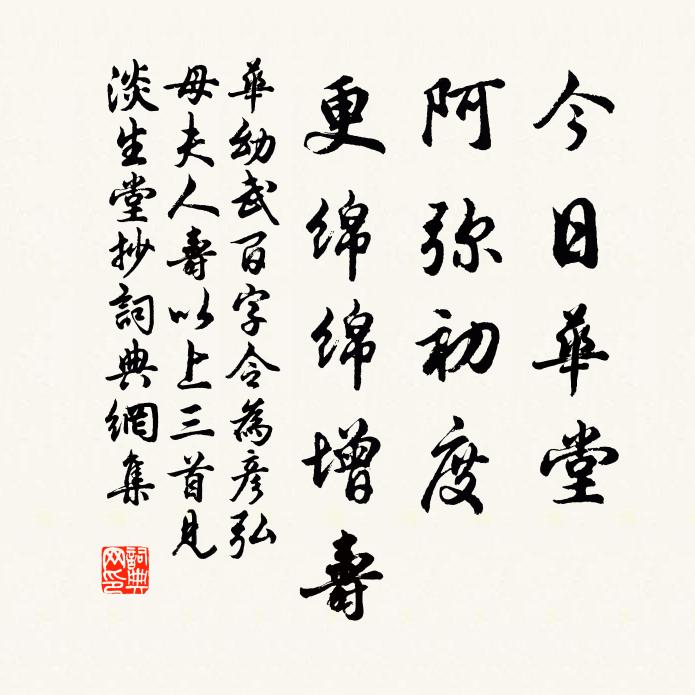 今日華堂
阿弥初度
更綿綿增壽
華幼武百字令為彦弘
母夫人壽以上三首見
淡生堂抄詞典網集
詞典网印